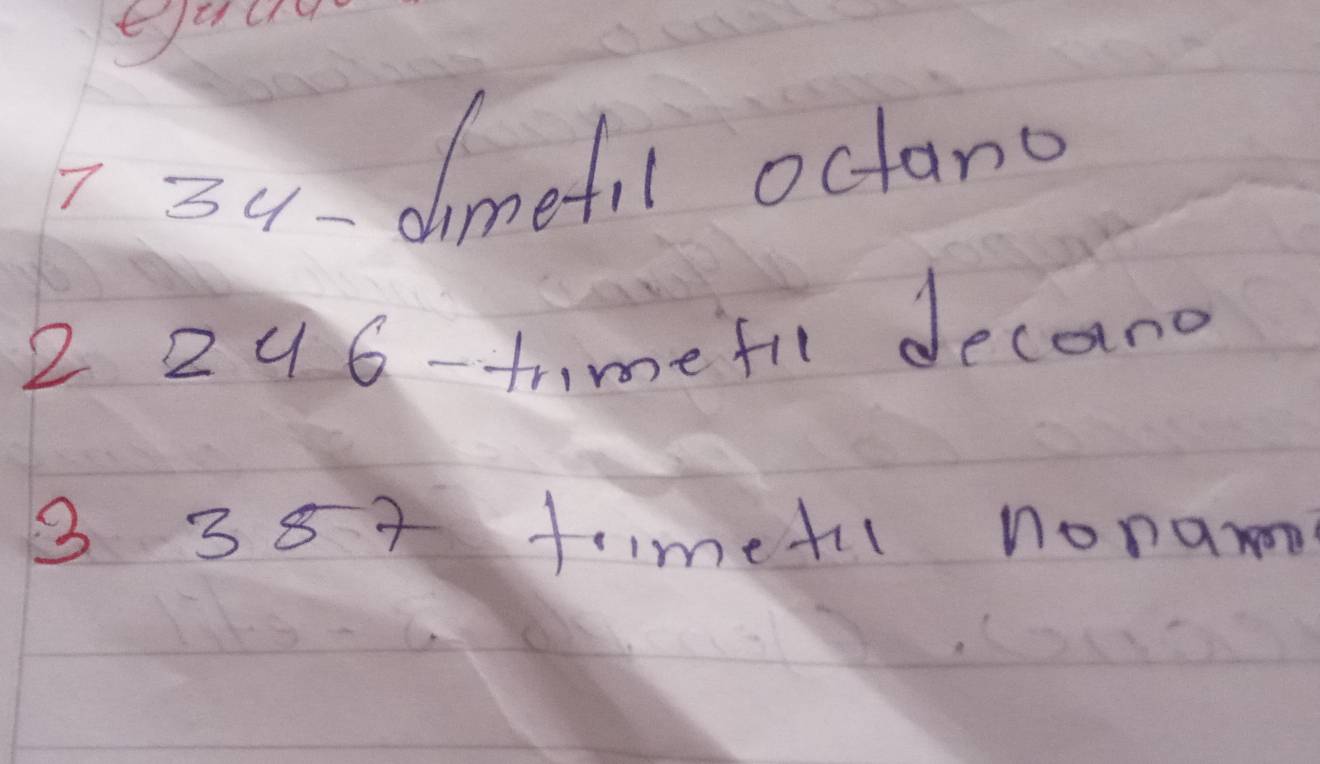 1 34-dimetil octano
2 246-trimetil decano
3 357 trimetil